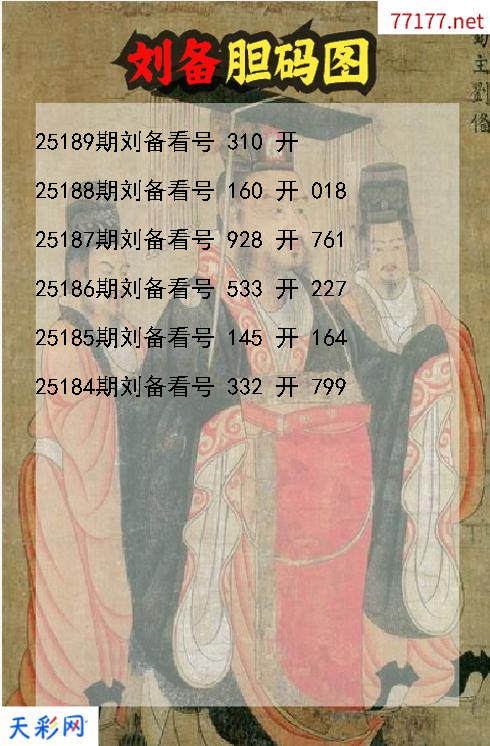 77177.net
蜀主劉備
刘备胆码图
25189期刘备看号 310 开
25188期刘备看号 160 开 018
25187期刘备看号 928 开 761
25186期刘备看号 533 开 227
25185期刘备看号 145 开 164
25184期刘备看号 332 开 799
天彩网